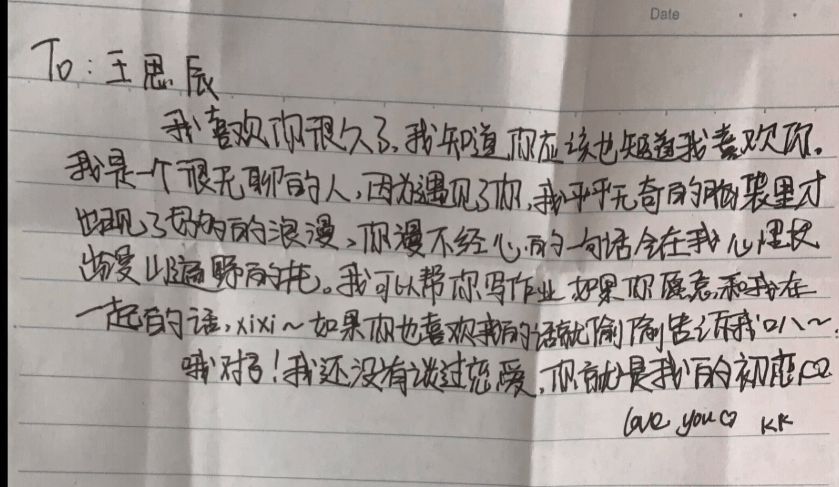 Date
To：王思辰
我喜欢你很久了，我知道你应该也知道我喜欢你，
我是一个很无聊的人，因为遇见了你，我平平无奇的脑袋里才
出现了的浪漫、你漫不经心的一句话会在我心里长
出漫山遍野的花。我可以帮你写作业如果你愿意和我在
一起的话，xixi～如果你也喜欢我的话就偷偷告诉我叭～
哦对了！我还没有谈过恋爱，你就是我的初恋
love you♡ KK